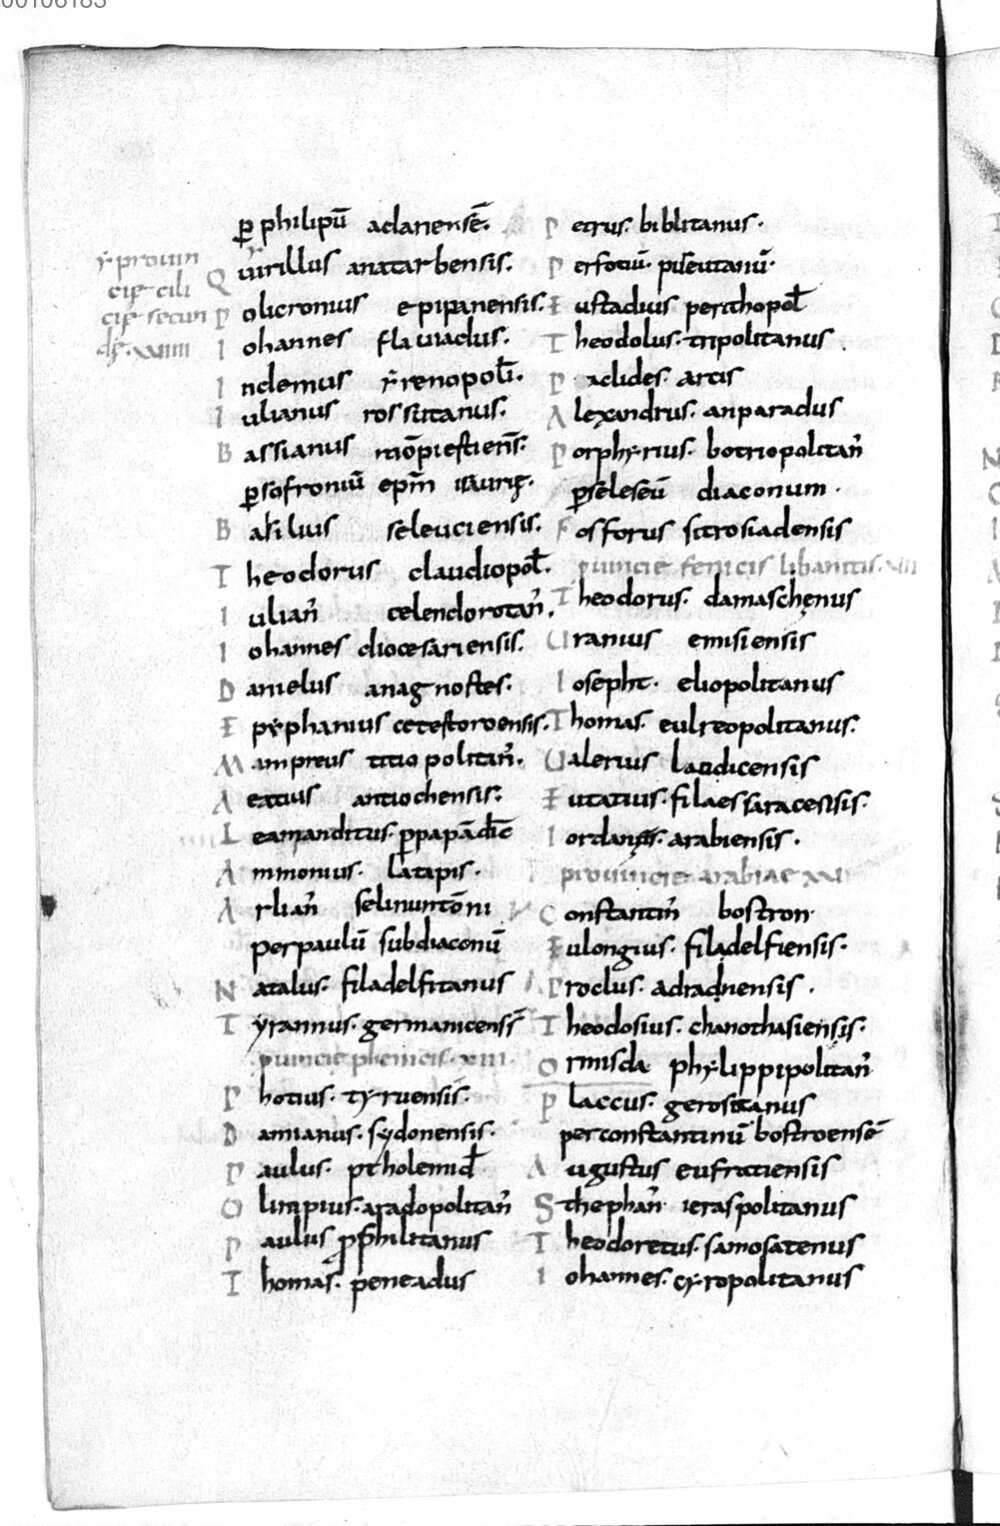 ꝑ philipū adanensē.
ẏ prouin
cię cili
cię secun
dę. xxiiii
Quirillus anatarbensis.
Policronius epipanensis.
Iohannes flauiadus.
Indemus ẏrenopoli.
Iulianus rossutanus.
Bassianus
ꝑ sofroniū epm̄ isaurię.
Basilius seleuciensis.
Theodorus claudiopol̄.
Iulian̄ celendorotan̄.
Iohannes diocesariensis.
Danielus anagnostes.
Epẏphanius cetestoroensis.
Mampreus titiopolitan̄.
Aeatius antiochensis.
Leamanditus. ꝑ papā dic̄
Ammonius. latapis.
Arlian̄ selinuntōni
per paulū subdiaconū
Natalus. filadelfitanus
Tẏrannus. germanicens̄
puincie phenicis. xiii.
Photius. tẏruensis.
Damianus. sẏdonensis.
Paulus. ptholemid̄
Olimpius. aradopolitan̄
Paulus
Thomas. peneadus
Petrus. biblitanus.
Eustadius parthopol̄
Theodolus. tripolitanus.
Paclides. arcis
Alexandrus. anparadus
Porphẏrius. botriopolitan̄
diaconum.
Fosforus sitrosiadensis
puincie fenicis libanitis. xiii
Theodorus. damaschenus
Uranius emisiensis
Iosepht. eliopolitanus
Thomas. eulreopolitanus.
Ualerius laudicensis
Eutatius. filaes saracensis.
Iordanes. arabiensis.
prouincie arabiae xxi
Constantin̄ bostron.
Eulongius. filadelfiensis.
Proclus. adradnensis.
Theodosius. chanothasiensis.
Ormisda phẏlippipolitan̄
Placcus. gerositanus
per constantinū bostroensē
Augustus eufratiensis
Stephan̄ ieraspolitanus
Theodoretus. samosatenus
Iohannes. cẏropolitanus